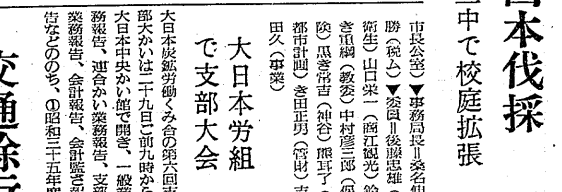 日本伐採
中で校庭拡張
市長公室）▼事務局長＝桑名
勝（税ム）▼委員＝後藤忠雄（
衛生）山口栄一（商江観光）鈴
き重綱（教委）中村彦三郎（保
険）黒き常吉（神谷）熊耳了（
都市計画）き田正男（管財）志
田久（事業）
大日本労組
で支部大会
大日本炭鉱労働くみ合の第六回支
部大かいは二十九日ご前九時から
大日本中央かい館で開き、一般業
務報告、連合かい業務報告、支部
業務報告、会計報告、会計監さ報
告などののち、①昭和三十五年度
交通除